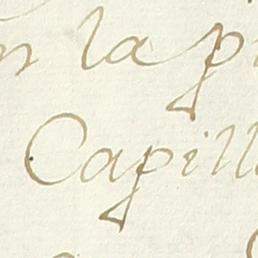 n la p
Capill